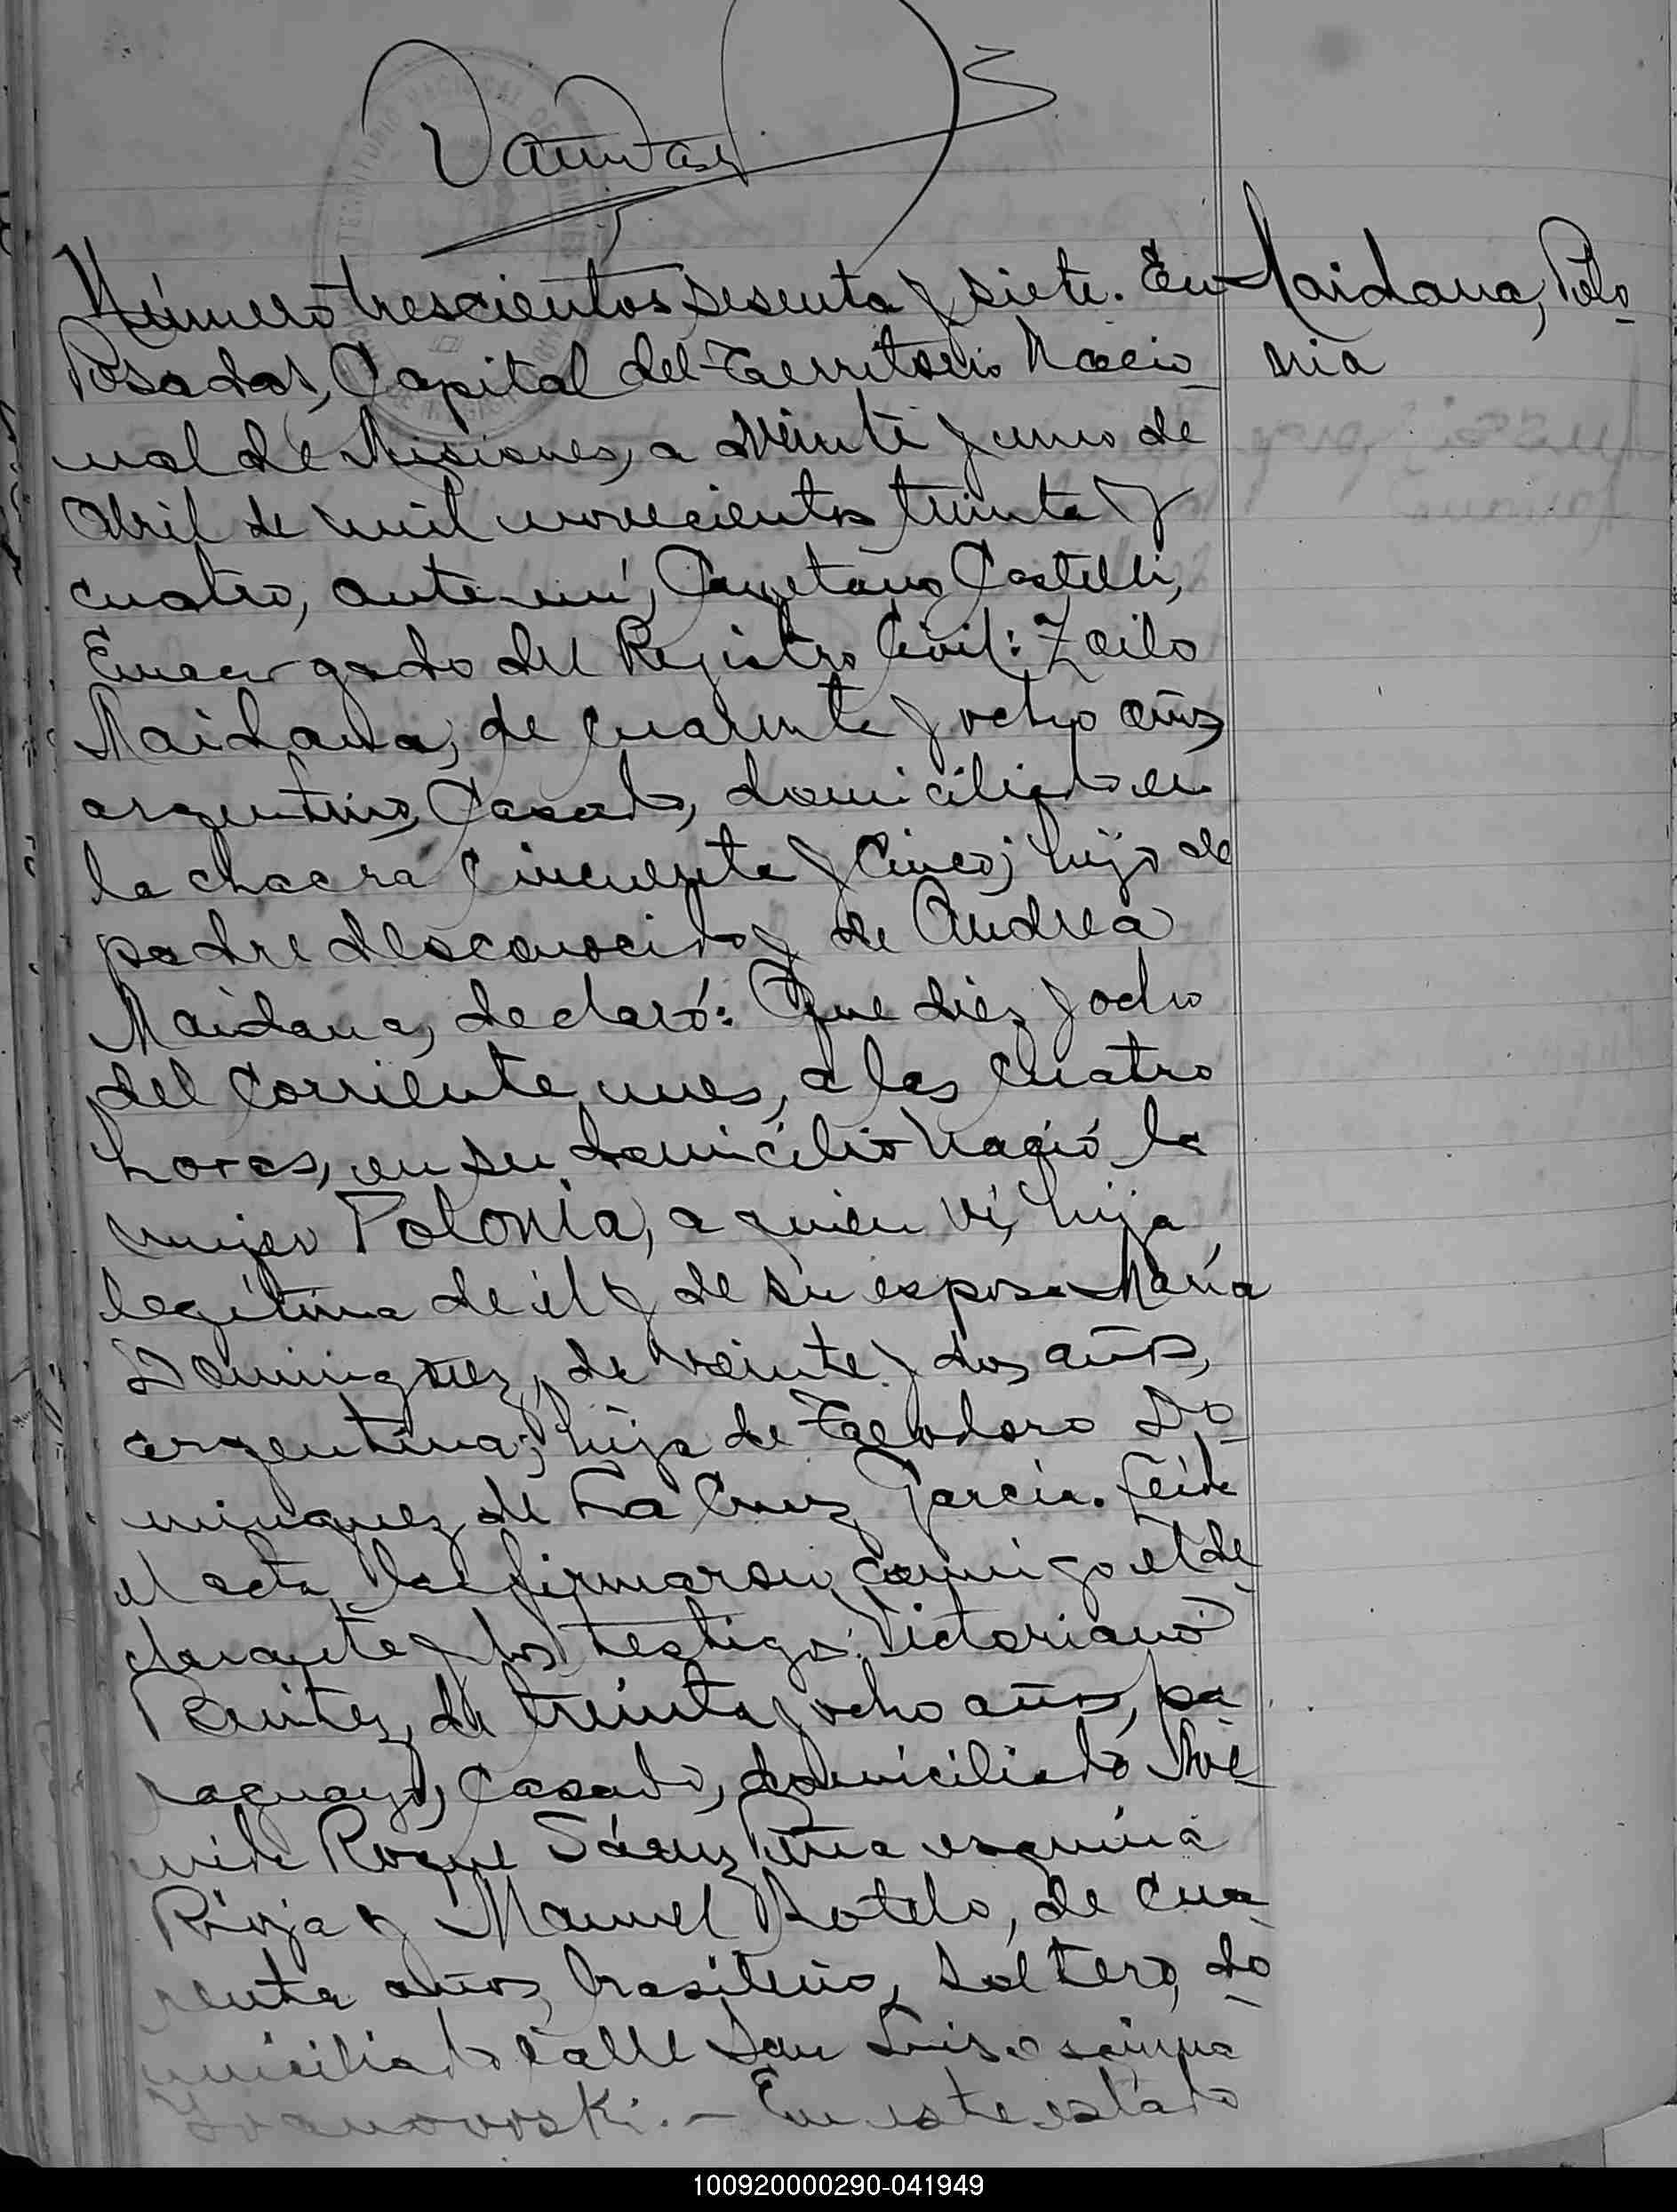 Número trescientos sesenta y siete. En
Maidana, Polo-
nia
Posadas, Capital del Territorio Nacio-
nal de Misiones, a veinte y uno de
Abril de mil novecientos treinta y
cuatro, ante mí, Cayetano Castelli,
Encargado del Registro Civil: Zoilo
Maidana, de cuarenta y ocho años,
argentino, Casado, domiciliado en
la chacra Cincuenta y Cinco; hijo de
padre desconocido y de Andrea
Maidana, declaró: Que diez y ocho
del Corriente mes, a las Cuatro
horas, en su domicilio nació la
mujer Polonia, a quien ví, hija
legítima de él y de su esposa María
Dominguez, de veinte y dos años,
argentina; hija de Teodoro Do-
minguez, de La Cruz García. Leída
el acta, la firmaron conmigo el de-
clarante y los testigos: Victoriano
Benitez, de treinta y ocho años, pa-
raguayo, Casado, domiciliado Ave-
nida Roque Sáenz Peña esquina
Rioja y Manuel Botelo, de Cua-
renta años, brasilero, soltero, do-
miciliado calle San Luis esquina
En este estado
TERRITORIO NACIONAL DE
100920000290-041949